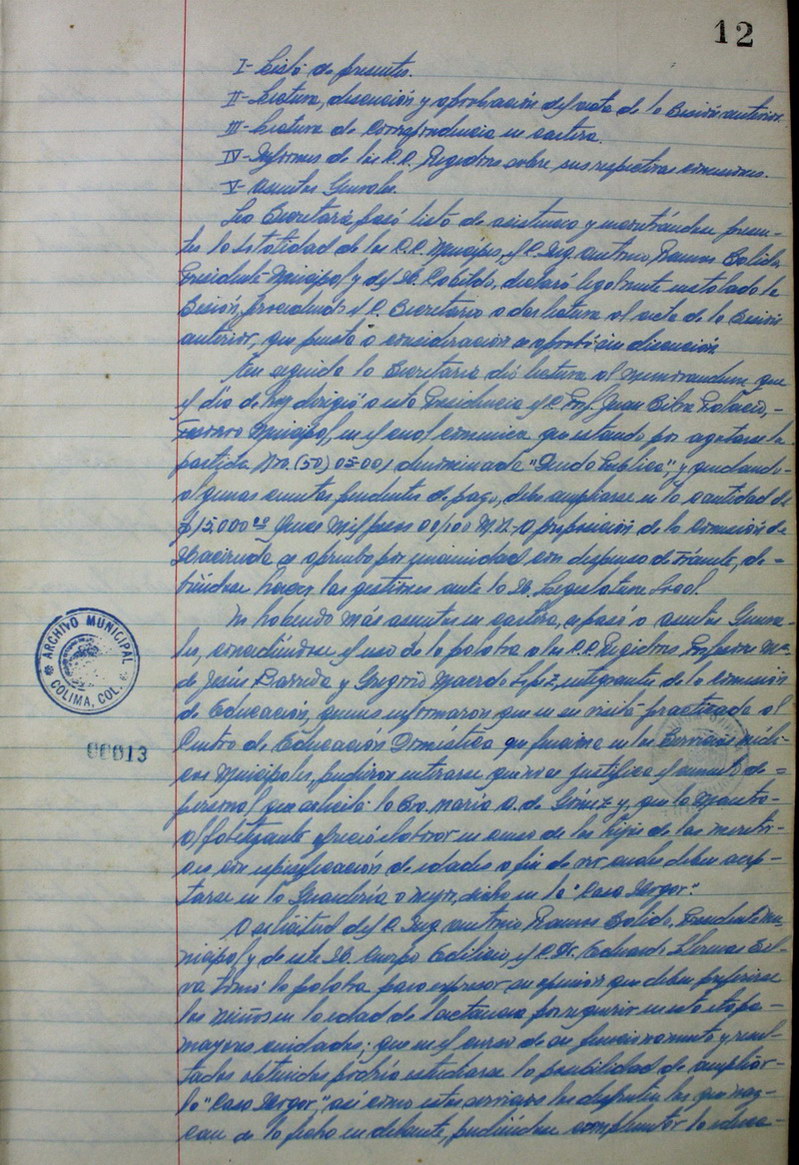 12
I- Lista de presentes.
II- Lectura, discusión y aprobación del acta de la Sesión anterior.
III- Lectura de Correspondencia en cartera.
IV- Informes de los C.C. Regidores sobre sus respectivas comisiones.
V- Asuntos Generales.
La Secretaría pasó lista de asistencia y encontrándose presen-
tes la totalidad de los C.C. Munícipes, el C. Ing. Antonio Ramos Salido,
Presidente Municipal y del H. Cabildo, declaró legalmente instalada la
Sesión, procediendo el C. Secretario a dar lectura al acta de la Sesión
anterior, que puesta a consideración se aprobó sin discusión
En seguida la Secretaría dió lectura al Memorandum que
el día de hoy dirigió a esta Presidencia el C. Prof. Juan Silva Palacio,-
Tesorero Municipal, en el cual comunica que estando por agotarse la
partida Nro. (50) 05-001 denominada "Deuda Pública" y quedando
algunas cuentas pendientes de pago, debe ampliarse en la cantidad de
$15,000.00 Quince Mil pesos 00/100 M.N.- A proposición de la Comisión de
Hacienda se aprueba por unanimidad con dispensa de trámite, de-
biéndose hacer las gestiones ante la H. Legislatura Local.
No habiendo más asuntos en cartera, se pasó a asuntos Genera-
les, concediéndose el uso de la palabra a los C.C. Regidores Profesores Ma.
de Jesús Barreda y Gregorio Macedo López, integrantes de la Comisión
de Educación, quienes informaron que en su visita practicada al
Centro de Educación Doméstica que funciona en los Servicios Médi-
cos Municipales, pudieron enterarse que no se justifica el aumento de
personal que solicita la Sra. María A. de Gómez y, que la Maestra
alfabetizante ofreció elaborar un censo de los hijos de las meretri-
ces con especificación de edades a fin de ver cuales deben acep-
tarse en la Guardería o mejor dicho en la "Casa Hogar".
A solicitud del C. Ing. Antonio Ramos Salido, Presidente Mu-
nicipal y de este H. Cuerpo Edilicio, el C. Dr. Eduardo Llerenas Sil-
va tomó la palabra para expresar su opinión que deben preferirse
los niños en la edad de lactancia por requerir en esta etapa-
mayores cuidados; que en el curso de su funcionamiento y resul-
tados obtenidos podría estudiarse la posibilidad de ampliar-
la "Casa Hogar", así como estos servicios los disfruten los que naz-
can de la fecha en delante, pudiéndose complementar la educa-
ARCHIVO MUNICIPAL
COLIMA, COL.
00013